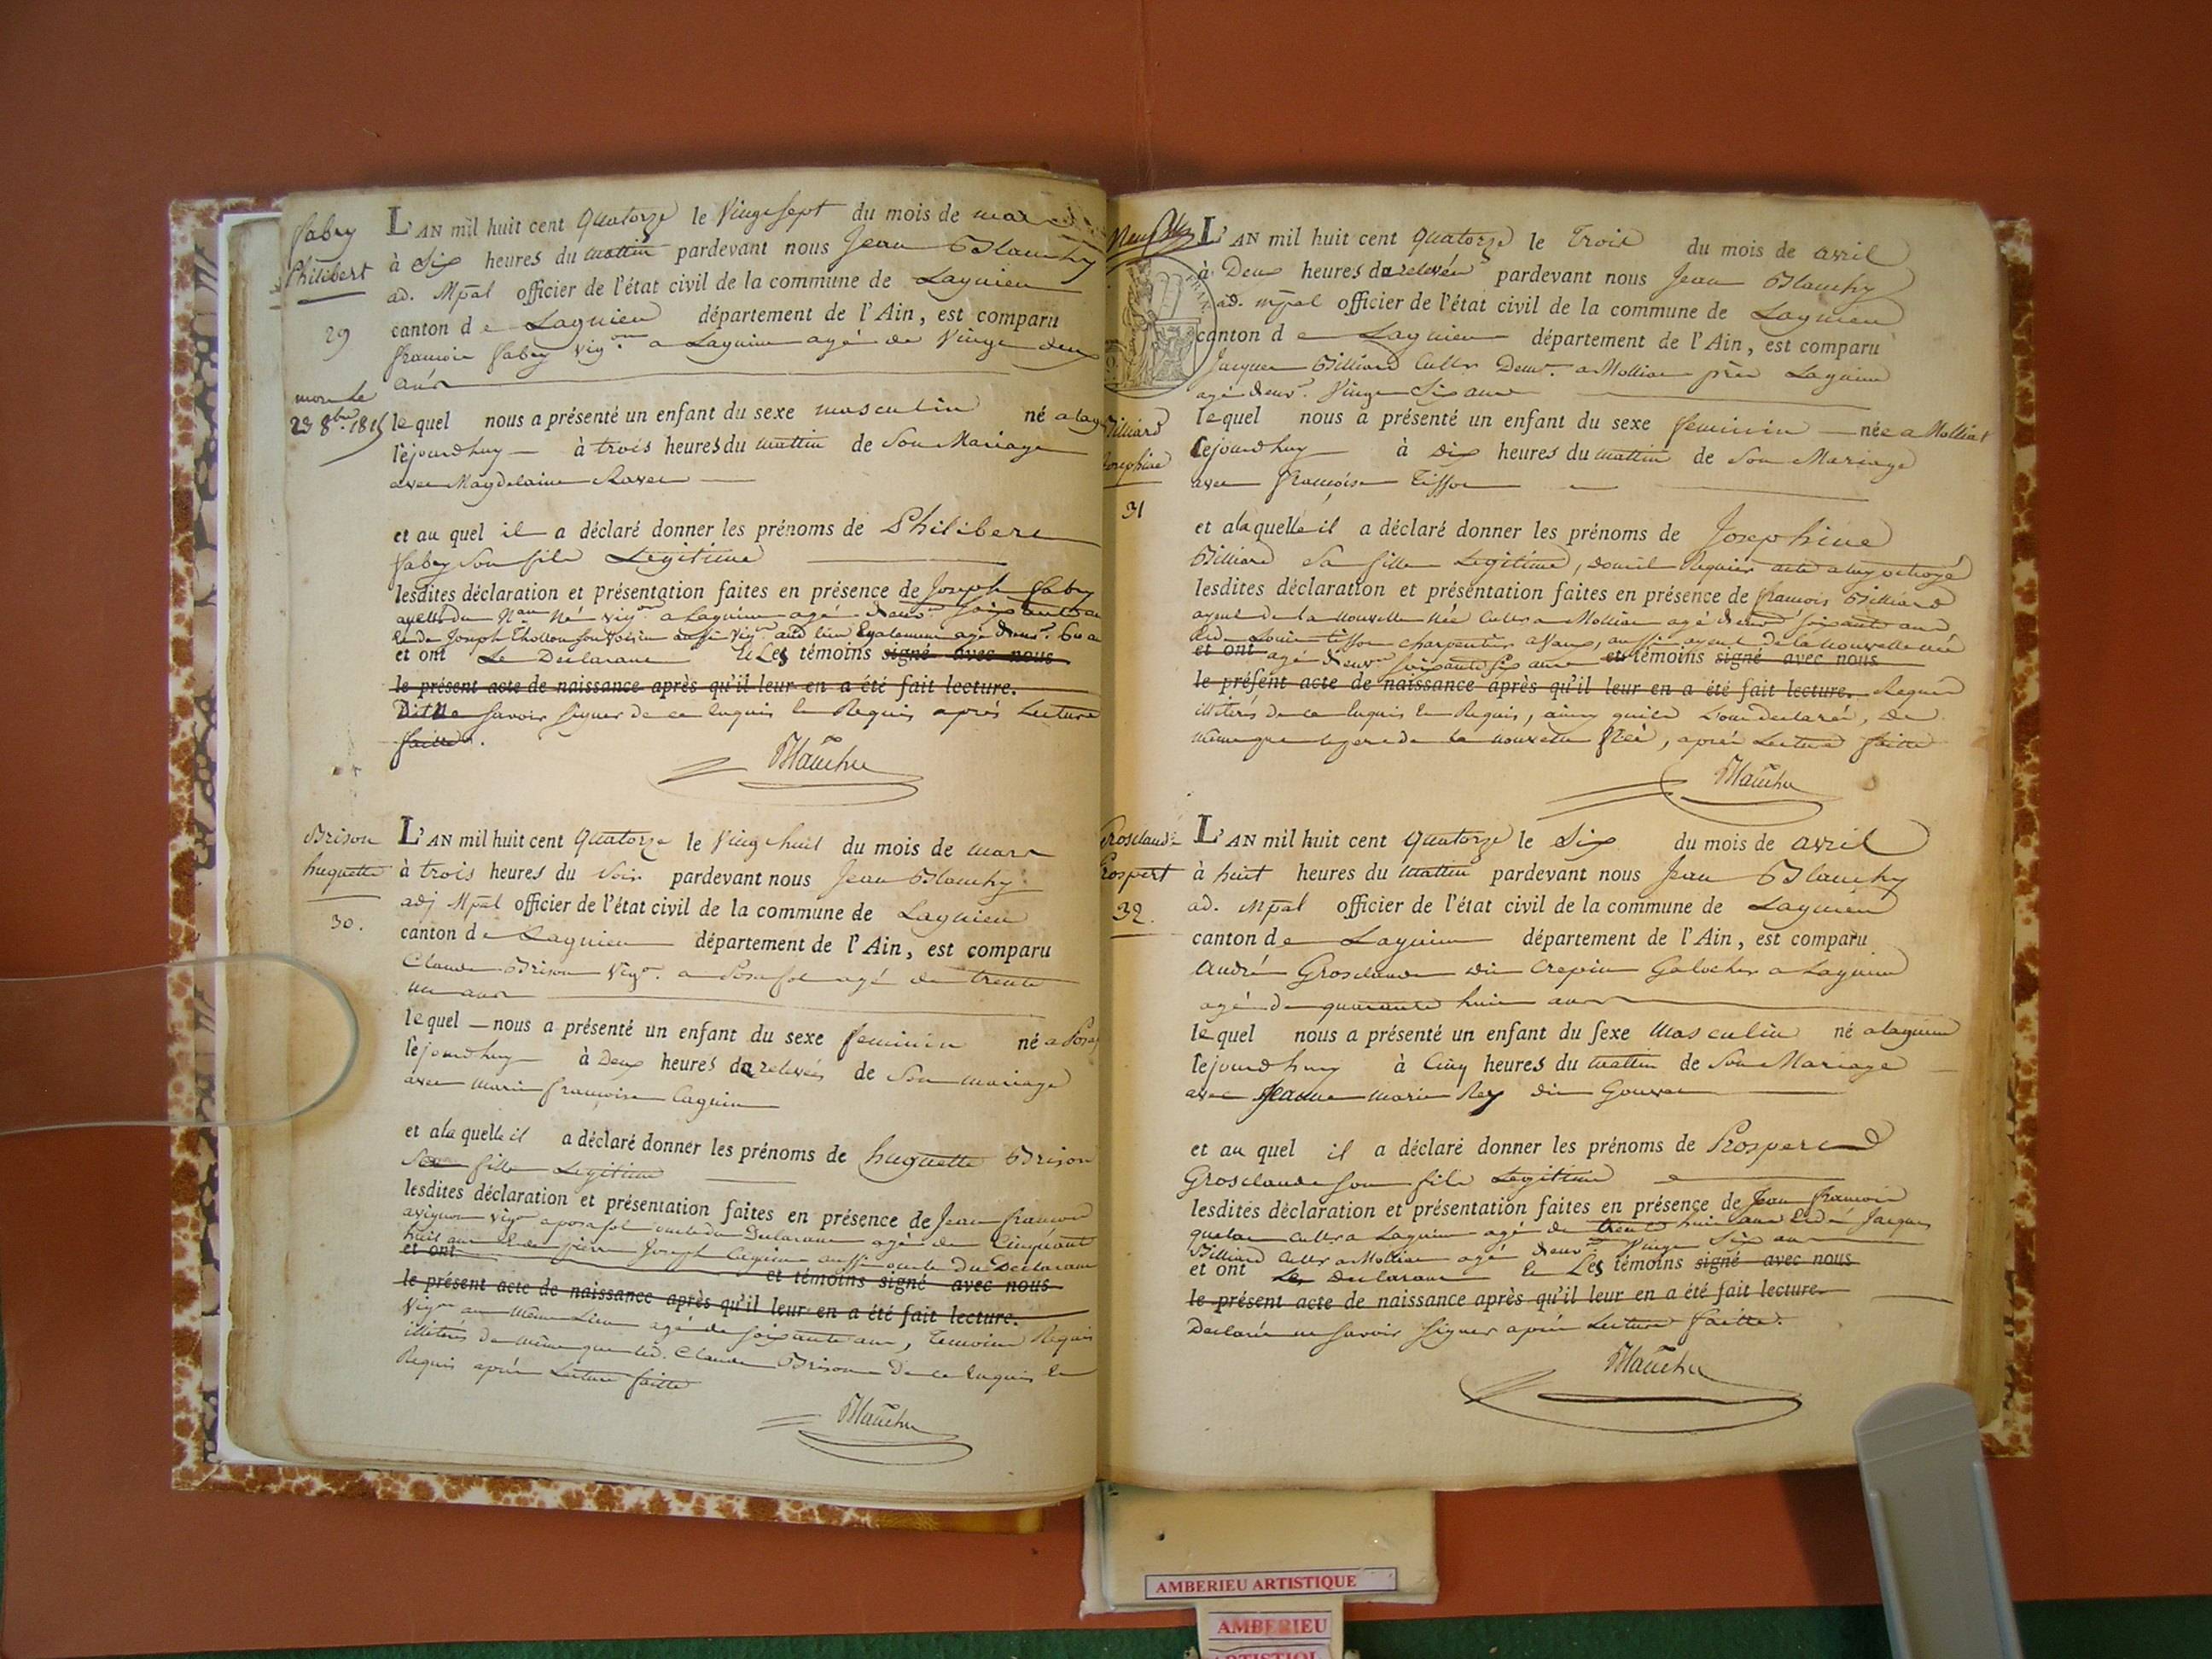 fabry
Philibert
29
mort le
23 8bre 1815
L'AN mil huit cent quatorze le vingt sept du mois de mars
à six heures du mattin pardevant nous Jean Blanchy
ad. Mpal officier de l'état civil de la commune de Lagnieu
canton de Lagnieu département de l'Ain, est comparu
francois fabry vign.on a Lagnieu agé de vingt deux
ans
lequel nous a présenté un enfant du sexe masculin né a lag
cejourdhuy à trois heures du mattin de Son Mariage
avec Magdelaine Ravet
et au quel il a déclaré donner les prénoms de Philibert
fabry son fils Legitime
lesdites déclaration et présentation faites en présence de Joseph fabry
ayeul du N.au Né vig.on a Lagnieu agé denv.n soixante ans
et de Joseph Thollon son Voisin aussi vig.on aud lieu Egalement agé denv.n 60 a
et ont Le Declarant et Les témoins signé avec nous
le présent acte de naissance après qu'il leur en a été fait lecture.
Dit Ne savoir signer de ce Enquis et Requis après Lecture
faitte.
Blanchy
Brison
huguette
30.
L'AN mil huit cent quatorze le vingt huit du mois de mars
à trois heures du soir pardevant nous Jean Blanchy
adj Mpal officier de l'état civil de la commune de Lagnieu
canton de Lagnieu département de l'Ain, est comparu
Claude Brison Vig.on a Posafol agé de trente
un ans
lequel nous a présenté un enfant du sexe feminin né a Posaf
cejourdhuy à Deux heures de relevée de Son mariage
avec marie françoise Cagnin
et a la quelle il a déclaré donner les prénoms de huguette Brison
Sa fille Legitime
lesdites déclaration et présentation faites en présence de Jean francois
avignon vig.on a posafol oncle du Declarant agé de Cinquante
huit ans et de pierre Joseph Cagnin aussi oncle du Declarant
et ont et témoins signé avec nous
le présent acte de naissance après qu'il leur en a été fait lecture.
Vig.on au même Lieu agé de soixante ans, temoins Requis
illiterés de même que led. Claude Brison De ce Enquis et
Requis après Lecture faitte
Blanchy
Billiard
Josephine
31
L'AN mil huit cent quatorze le Trois du mois de avril
à Deux heures de relevée pardevant nous Jean Blanchy
ad. mpal officier de l'état civil de la commune de Lagnieu
canton de Lagnieu département de l'Ain, est comparu
Jacques Billiard Cult.r Dem.t a Mollias près Lagnieu
agé denv.n Vingt Six ans
lequel nous a présenté un enfant du sexe feminin née a Molliat
cejourdhuy à Dix heures du mattin de Son Mariage
avec françoise Tissot
et a la quelle il a déclaré donner les prénoms de Josephine
Billiard Sa fille Legitime, dont il Requier acte a luy octroyé
lesdites déclaration et présentation faites en présence de francois Billiard
ayeul de la nouvelle Née Cult.r a Mollias agé denv.n soixante ans
et de Louis tissot charpentier a Vaux, aussi ayeul de la nouvelle née
et ont agé denv.on soixante six ans et témoins signé avec nous
le présent acte de naissance après qu'il leur en a été fait lecture. Requis
illiterés de ce Enquis et Requis, ainsy quils L'ont declaré, de
même que le pere de la nouvelle Née, après Lecture faitte
Blanchy
Grosclaude
Prospert
32.
L'AN mil huit cent quatorze le Six du mois de avril
à huit heures du mattin pardevant nous Jean Blanchy
ad. mpal officier de l'état civil de la commune de Lagnieu
canton de Lagnieu département de l'Ain, est comparu
André Grosclaude dit Crepin Galocher a Lagnieu
agé de quarante huit ans
lequel nous a présenté un enfant du sexe Masculin né a lagnieu
cejourdhuy à Cinq heures du mattin de Son Mariage
avec Jeanne marie Rey dit Gouvat
et au quel il a déclaré donner les prénoms de Prospert
Grosclaude son fils Legitime
lesdites déclaration et présentation faites en présence de Jean francois
cult.r a Lagnieu agé de trente huit ans et de Jacques
Billiard Cult.r a Mollias agé denv.n Vingt Six ans
et ont Le Declarant et Les témoins signé avec nous
le présent acte de naissance après qu'il leur en a été fait lecture.
Declaré ne savoir signer après Lecture faitte.
Blanchy
AMBERIEU ARTISTIQUE
AMBERIEU